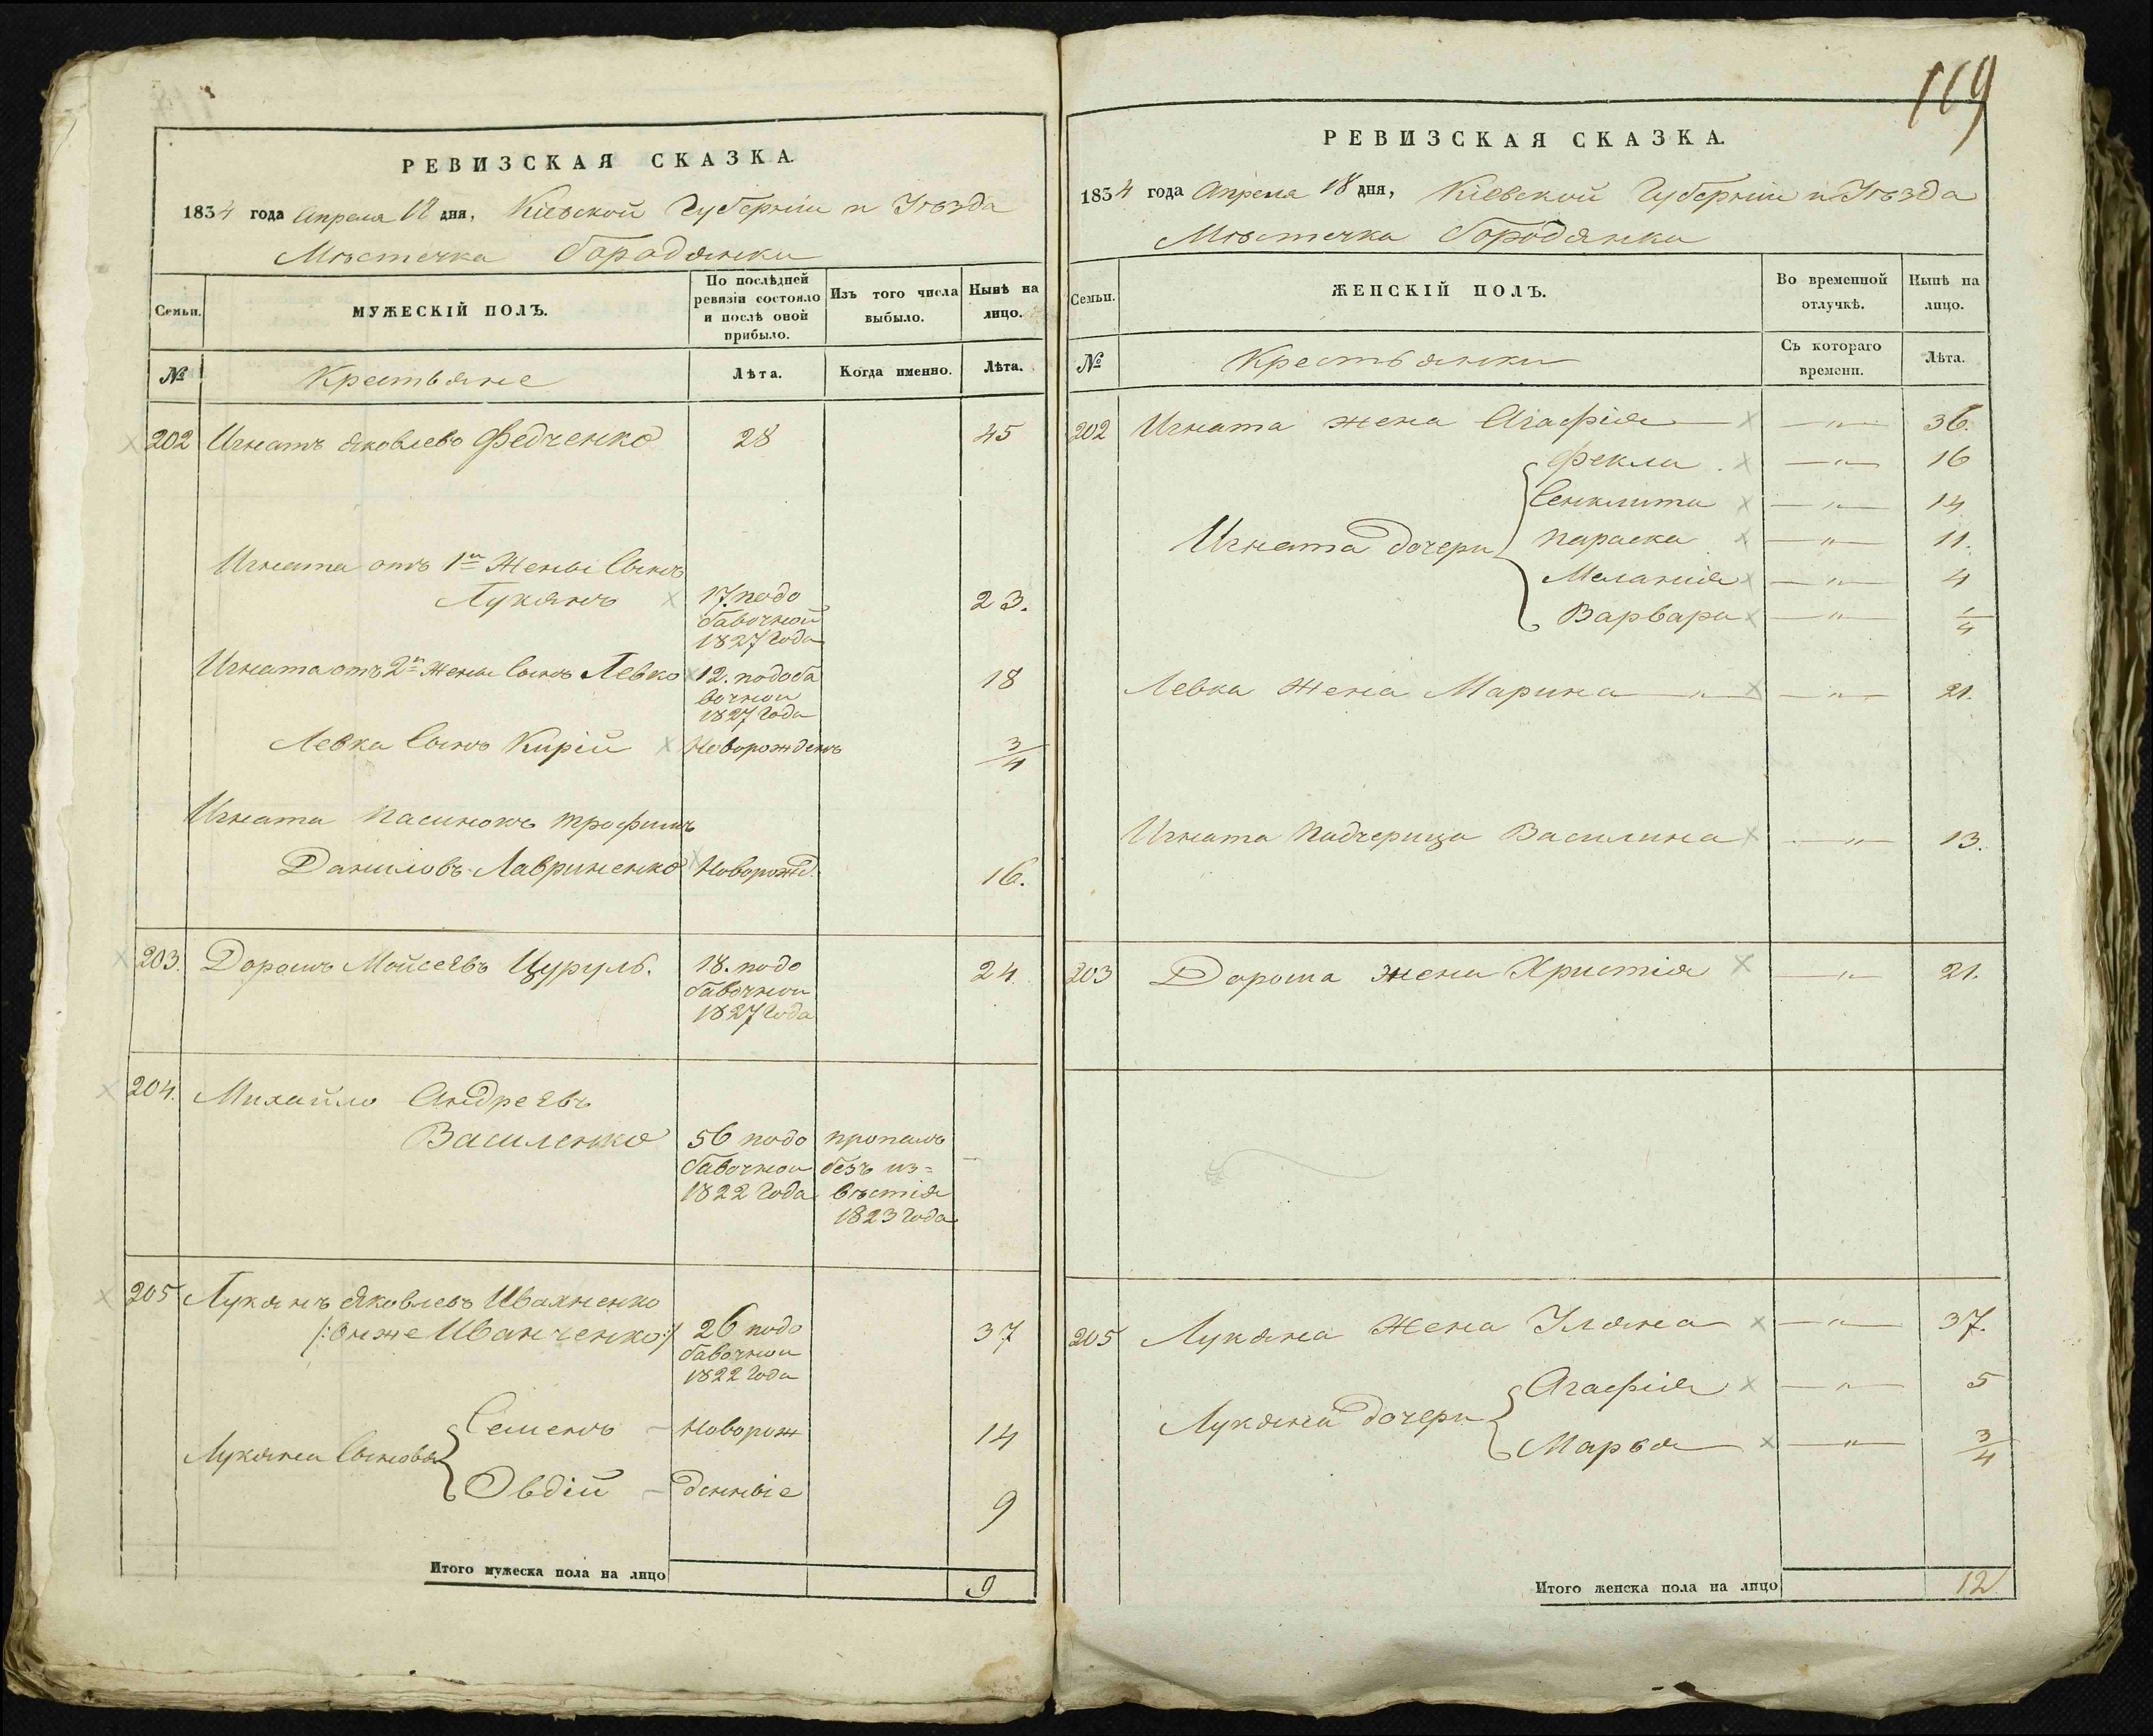 РЕВИЗСКАЯ СКАЗКА.
1834 года Апреля 18 дня, Кіевской Губерніи и Уѣзда
Мѣстечка Бородянки
Семьи.
МУЖЕСКІЙ ПОЛЪ.
По послѣдней
ревизіи состояло
и послѣ оной
прибыло.
Изъ того числа
выбыло.
Нынѣ на
лицо.
№
Крестьяне
Лѣта.
Когда именно.
Лѣта.
202 Игнатъ Яковлевъ Федченко 28 45
Игната отъ 1й Жены Сынъ
Лукянъ 17. подо 23.
бавочной
1827 Года
Игната отъ 2й Жены Сынъ Левко 12.подоба 18
вочной
1827 Года
Левка Сынъ Кирій Новорожденъ 3/4
Игната Пасинокъ Трофимъ
Даниловъ Лавриненко Новорожд. 16.
203. Дорошъ Мойсеевъ Цуруль. 18. подо 24.
бавочной
1827 Года
204. Михайло Андреевъ
Василенко 56 подо пропалъ —
бавочной безъ из=
1822 Года вѣстія
1823 Года
205 Лукянъ Яковлевъ Иваxненко
/:Онже Иванченко:/ 26 подо 37
бавочной
1822 Года
Лукяна Сыновя
Семенъ — Новорож 14
Овдій — денные 9
Итого мужеска пола на лицо 9
119
РЕВИЗСКАЯ СКАЗКА.
1834 года Апреля 18 дня, Кіевской Губерніи и Уѣзда
Мѣстечка Бородянки
Семьи.
ЖЕНСКІЙ ПОЛЪ.
Во временной
отлучкѣ.
Нынѣ на
лицо.
№
Крестьянки
Съ котораго
времени.
Лѣта.
202 Игната жена Агафія — " — 36.
Фекла — " — 16
Сенклита — " — 14
Игната дочери Параска — " — 11.
Меланія — " — 4
Варвара — " — 1/4
Левка Жена Марина — " — — " — 21.
Игната Падчерица Василина — " — 13.
203 Дороша жена Христія — " — 21.
205 Лукяна Жена Уляна — " — 37.
Лукяна дочери
Агафія — " — 5
Марья — " — 3/4
Итого женска пола на лицо 12